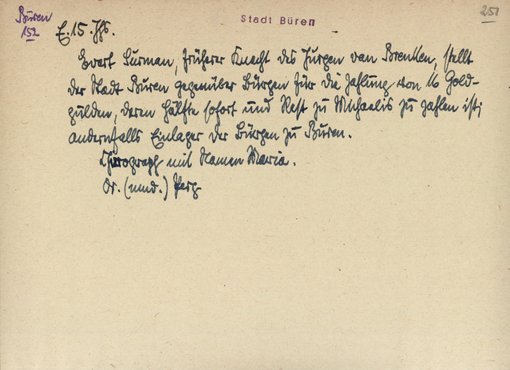 Büren
152
E. 15. Jhs.
Stadt Büren
251
Evert Surman, früherer Knecht des Jurgen van Brenken, stellt
der Stadt Büren gegenüber Bürgen für die Zahlung von 16 Gold-
gulden, deren Hälfte sofort und Rest zu Michaelis zu zahlen ist;
andernfalls Einlager der Bürgen zu Büren.
Chirograph mit Namen Maria.
Or. (mnd.) Perg